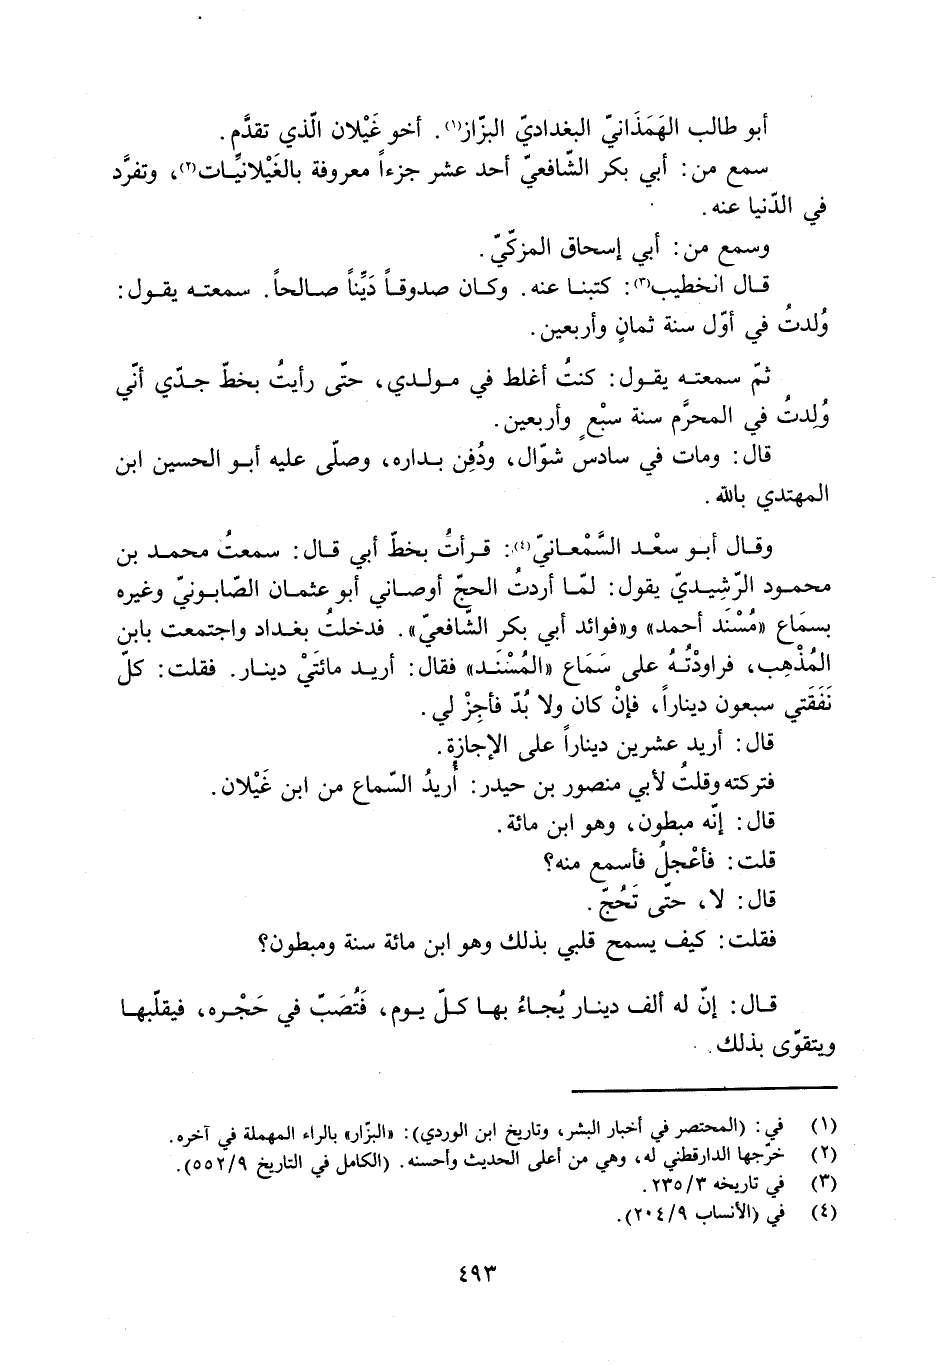 أبو طالب الهَمَذَانيّ البغداديّ البزّاز(١). أخو غَيْلان الّذي تقدَّم.
سمع من: أبي بكر الشّافعيّ أحد عشر جزءاً معروفة بالغَيْلانيَّات(٢)، وتفرَّد
في الدّنيا عنه.
وسمع من: أبي إسحاق المزكّيّ.
قال الخطيب(٣): كتبنا عنه. وكان صدوقاً دَيِّناً صالحاً. سمعته يقول:
وُلدتُ في أوّل سنة ثمانٍ وأربعين.
ثمّ سمعته يقول: كنتُ أغلط في مولدي، حتّى رأيتُ بخطّ جدّي أنّي
وُلِدتُ في المحرَّم سنة سبْعٍ وأربعين.
قال: ومات في سادس شوّال، ودُفِن بداره، وصلّى عليه أبو الحسين ابن
المهتدي بالله.
وقال أبو سعْد السَّمْعانيّ(٤): قرأتُ بخطّ أبي قال: سمعتُ محمد بن
محمود الرّشيديّ يقول: لمّا أردتُ الحجّ أوصاني أبو عثمان الصّابونيّ وغيره
بسمَاع «مُسْنَد أحمد» و«فوائد أبي بكر الشّافعيّ». فدخلتُ بغداد واجتمعت بابن
المُذْهِب، فراودْتُهُ على سَمَاع «المُسْنَد» فقال: أريد مائتَيْ دينار. فقلت: كلّ
نَفَقَتي سبعون ديناراً، فإنْ كان ولا بُدّ فأجِزْ لي.
قال: أريد عشرين ديناراً على الإجازة.
فتركته وقلتُ لأبي منصور بن حيدر: أُريدُ السّماع من ابن غَيْلان.
قال: إنّه مبطون، وهو ابن مائة.
قلت: فأعْجلُ فأسمع منه؟
قال: لا، حتّى تَحُجّ.
فقلت: كيف يسمح قلبي بذلك وهو ابن مائة سنة ومبطون؟
قال: إنّ له ألف دينار يُجاءُ بها كلّ يوم، فَتُصَبّ في حَجْره، فيقلّبها
ويتقوّى بذلك.
(١) في: (المحتصر في أخبار البشر، وتاريخ ابن الوردي): «البزّار» بالراء المهملة في آخره.
(٢) خرّجها الدارقطني له، وهي من أعلى الحديث وأحسنه. (الكامل في التاريخ ٥٥٢/٩).
(٣) في تاريخه ٢٣٥/٣.
(٤) في (الأنساب ٢٠٤/٩).
٤٩٣